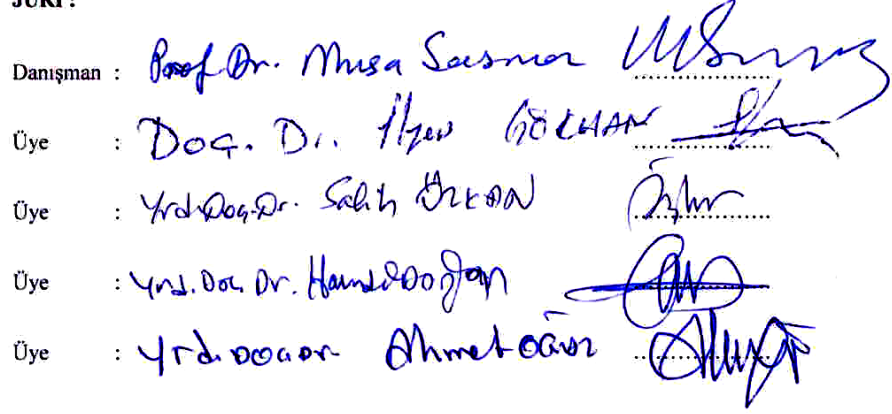 JÜRİ :
Danışman : Prof Dr. Musa Sasmaz
Üye : Doç. Dr. İlyas GÖKHAN
Üye : Yrd. Doç. Dr. Salih ÖZKAN
Üye : Yrd. Doç. Dr. Hamdi Doğan
Üye : Yrd. Doç Dr Ahmet OĞUZ